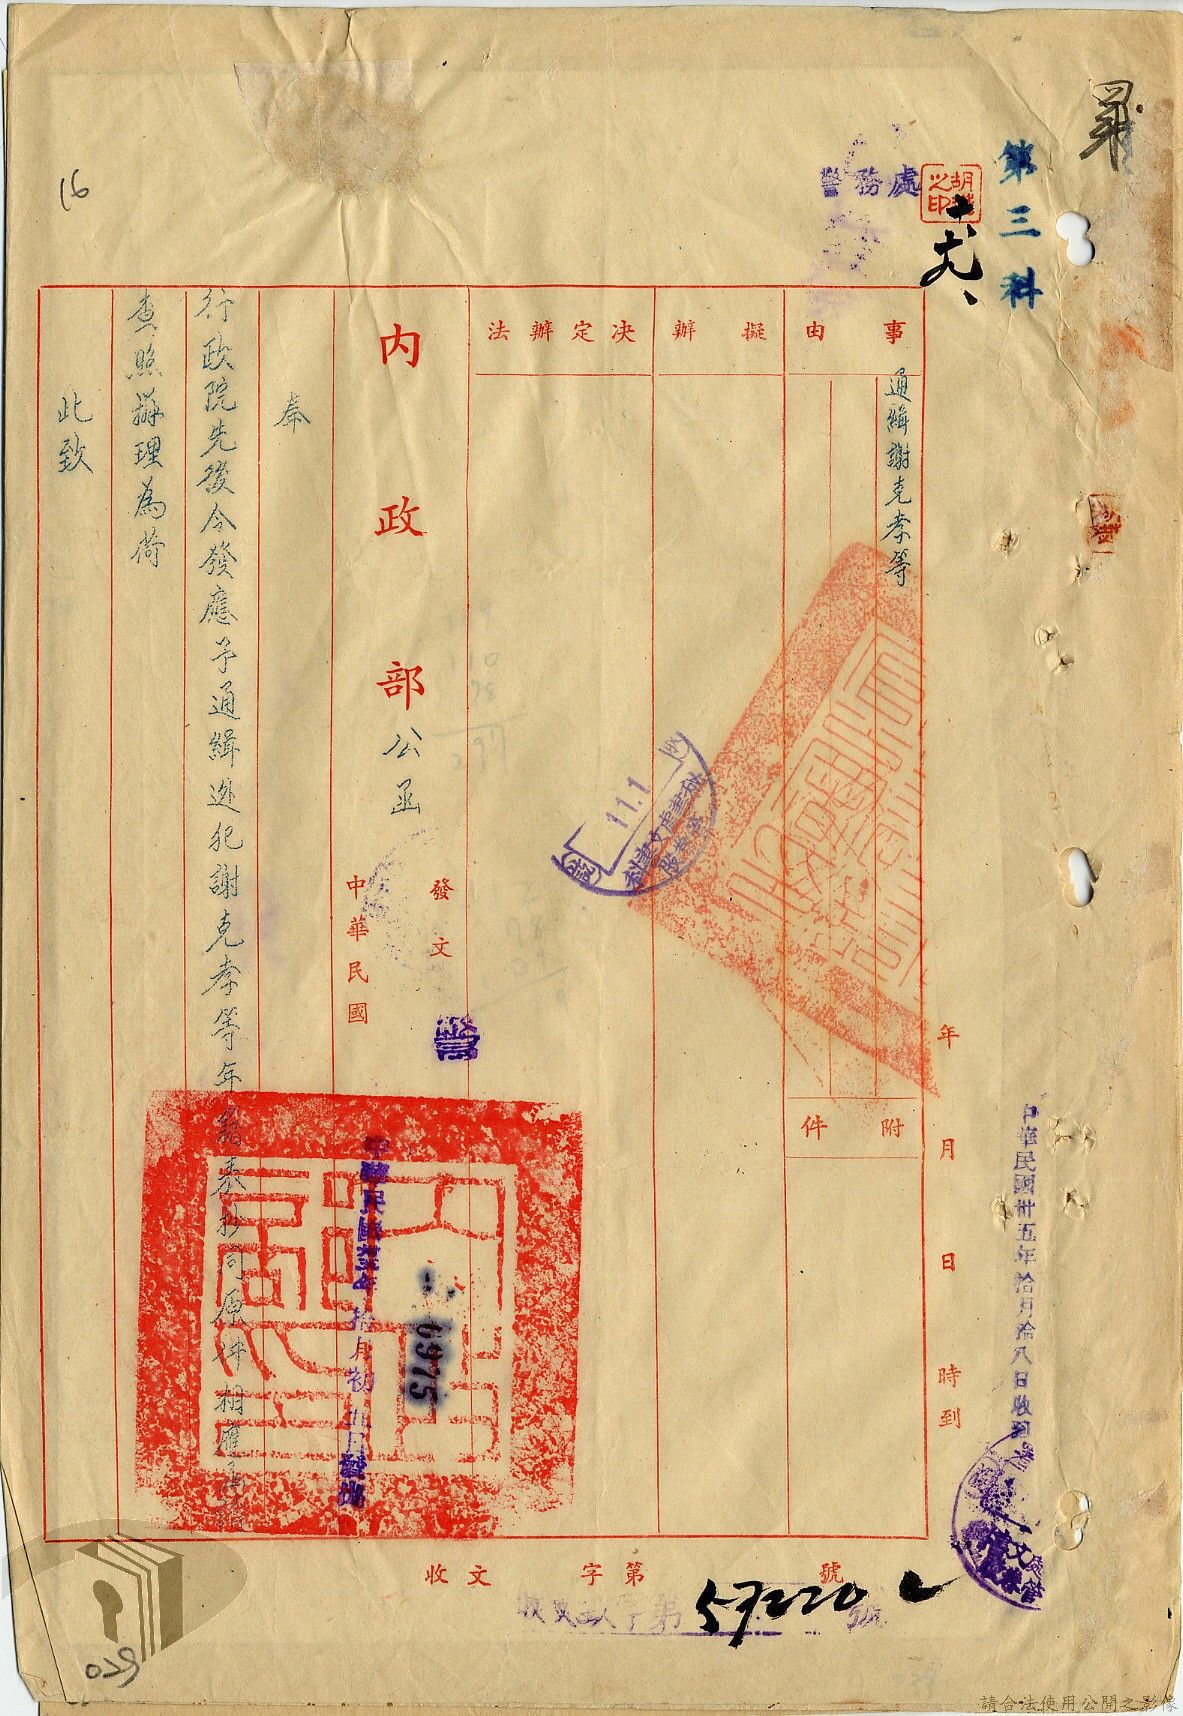 第三科
警務處
胡
之印
十、
十九、
中華民國卅五年拾月拾八日收到
年 月 日 時到
事由
通緝謝克孝等
附件
擬辦
決定辦法
11.1
內政部公函
發文
中華民國
中華民國卅五年拾月初九日發出
6975
奉
行政院先後令發應予通緝逃犯謝克孝等年籍表抄同原件相應函請
查照辦理為荷
此致
收文 字第 號
收文 字第 57220 號
16
029
請合法使用公開之影像